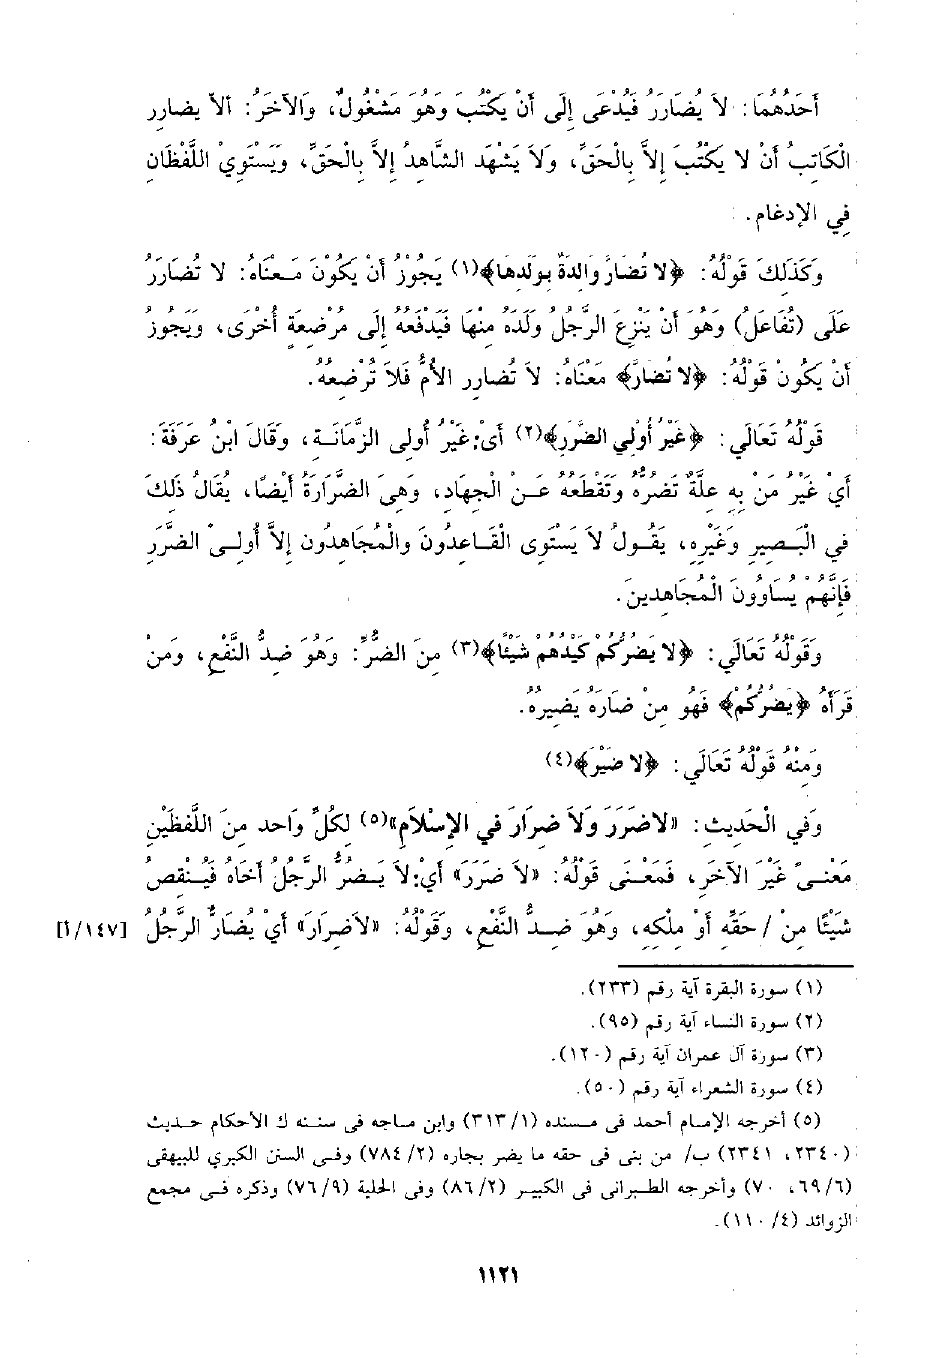 أَحَدُهُمَا: لاَ يُضَارَرُ فَيُدْعَى إِلَى أَنْ يَكْتُبَ وَهُوَ مَشْغُولٌ، وَالآخَرُ: ألاّ يضارر
الْكَاتِبُ أَنْ لا يَكْتُبَ إِلاَّ بِالْحَقِّ، وَلاَ يَشْهَد الشَّاهدُ إِلاَّ بِالْحَقِّ، وَيَسْتَوِيْ اللَّفْظَان
فِي الإدغام.
وَكَذَلِكَ قَوْلُهُ: ﴿لا تُضَارَّ وَالِدَةٌ بِوَلَدِهَا﴾(١) يَجُوْزُ أَنْ يَكُونَ مَعْنَاهُ: لا تُضَارَرُ
عَلَى (تُفَاعَلُ) وَهُوَ أَنْ يَنْزِعَ الرَّجُلُ وَلَدَهُ مِنْهَا فَيَدْفَعُهُ إِلَى مُرْضِعَةٍ أُخْرَى، وَيَجُوزُ
أَنْ يَكُونْ قَوْلُهُ: ﴿لا تُضَارَّ﴾ مَعْنَاهُ: لاَ تُضارر الأُمُّ فَلاَ تُرْضِعهُ.
قَوْلُهُ تَعَالَي: ﴿غَيْرُ أُوْلِي الضَّرَرِ﴾(٢) أىْ:غَيْرُ أُولى الزَّمَانَة، وَقَالَ ابْنُ عَرَفَةَ:
أَيْ غَيْرُ مَنْ بِهِ عِلَّةٌ تَضُرُّهُ وَتَقْطَعُهُ عَنْ الْجهَادِ، وَهِىَ الضَّرَارَةُ أَيْضًا، يُقَالُ ذَلكَ
في الْبَصِيرِ وَغَيْرِهِ، يَقُولُ لاَ يَسْتَوِى الْقَاعدُونَ والْمُجَاهدُون إِلاَّ أُولِى الضَّرَرِ
فَإِنَّهُمْ يُسَاوُونَ الْمُجَاهِدينَ.
وَقَوْلُهُ تَعَالَي: ﴿لا يَضُرُّكُمْ كَيْدُهُمْ شَيْئًا﴾(٣) مِنَ الضُّرِّ: وَهُوَ ضِدُّ النَّفْعِ، وَمَنْ
قَرَأَهُ ﴿يَضُرْكُمْ﴾ فَهُو مِنْ ضَارَهُ يَضِيرُهُ.
وَمِنْهُ قَوْلُهُ تَعَالَي: ﴿لا ضَيْرَ﴾(٤)
وَفِي الْحَدِيث: «لاضَرَرَ وَلاَ ضِرَارَ في الإِسْلاَمِ»(٥) لكُلِّ وَاحد مِنَ اللَّفظَيْنِ
مَعْنىً غَيْرَ الآخَرِ، فَمَعْنَى قَوْلُهُ: «لاَ ضَرَرَ» أي:لاَ يَضُرُّ الرَّجُلُ أَخَاهُ فَيَنْقص
شَيْئًا مِنْ / حَقِّه أَوْ مِلْكِه، وَهُوَ ضِدُّ النَّفْعِ، وَقَوْلُهُ: «لاَضِرَارَ» أَيْ يُضَارُّ الرَّجُلُ [١٤٧/أ]
(١) سورة البقرة آية رقم (٢٣٣).
(٢) سورة النساء آية رقم (٩٥).
(٣) سورة آل عمران آية رقم (١٢٠).
(٤) سورة الشعراء آية رقم (٥٠).
(٥) أخرجه الإمام أحمد فى مسنده (٣١٣/١) وابن ماجه فى سننه ك الأحكام حديث
(٢٣٤٠، ٢٣٤١) ب/ من بنى فى حقه ما يضر بجاره (٧٨٤/٢) وفى السنن الكبري للبيهقى
(٦٩/٦، ٧٠) وأخرجه الطبرانى فى الكبير (٨٦/٢) وفى الحلية (٧٦/٩) وذكره فى مجمع
الزوائد (١١٠/٤).
١١٢١